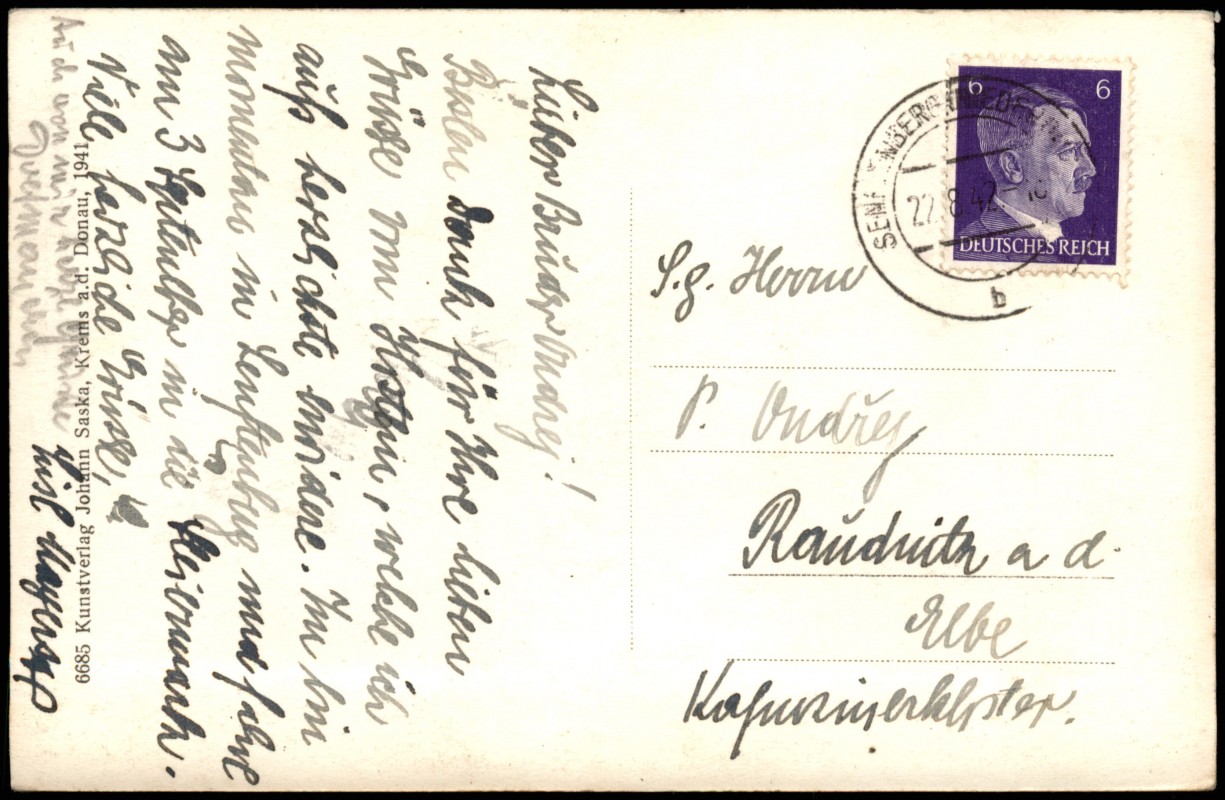 Lieber Bruder Ondrej!
Besten Dank für Ihre lieben
Grüsse vom Hostein, welche ich
aufs herzlichste erwidere. Im bin
momentan in Senftenberg und fahre
am 3 September in die Steiermark.
Viele herzliche Grüsse,
Lisl
Auch von mir
6685 Kunstverlag Johann Saska, Krems a.d. Donau, 1941
6 6
DEUTSCHES REICH
22.8.42
b
S.g. Herrn
P. Ondřej
Raudnitz a d.
Elbe
Kapuzinerkloster.